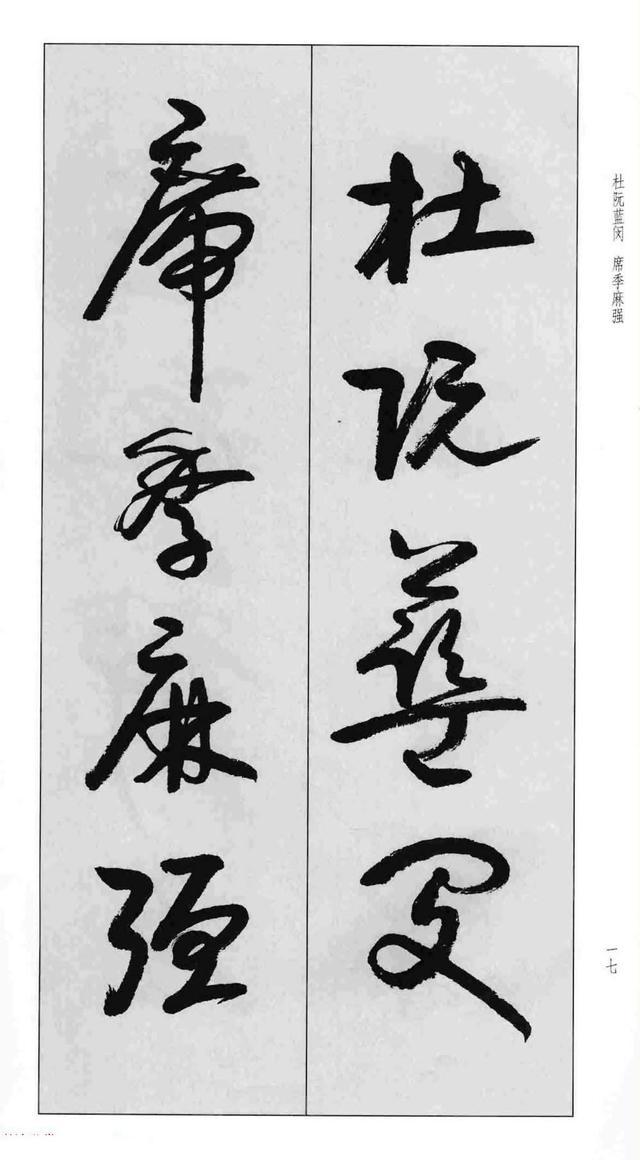 杜阮蓝闵
席季麻强
杜阮蓝闵 席季麻强
一七